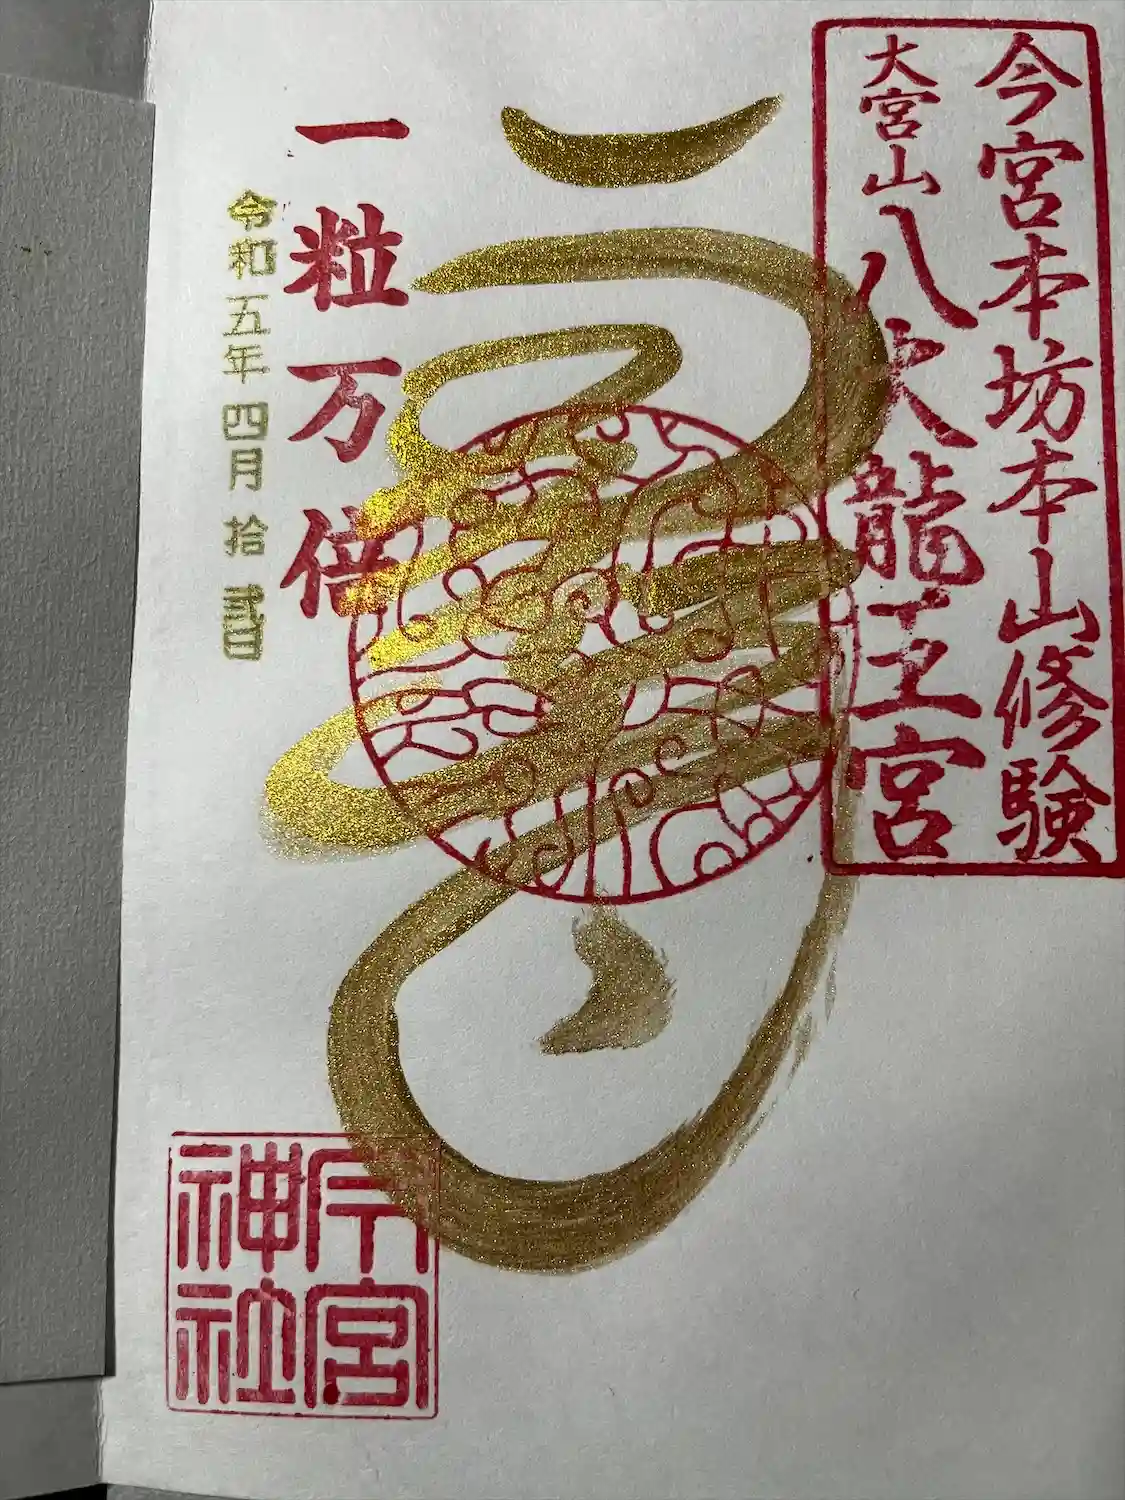 今宮本坊本山修験
大宮山八大龍王宮
一粒万倍
令和五年四月拾弐日
今宮神社